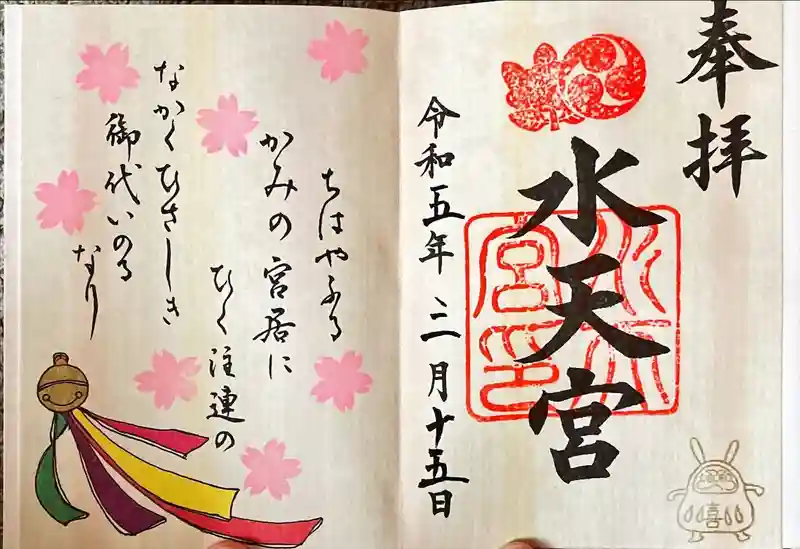 奉拝
水天宮
水天
宮印
令和五年 三月十五日
ちはやふる
かみの宮居に
ひく注連の
なかくひさしき
御代いのる
なり
喜